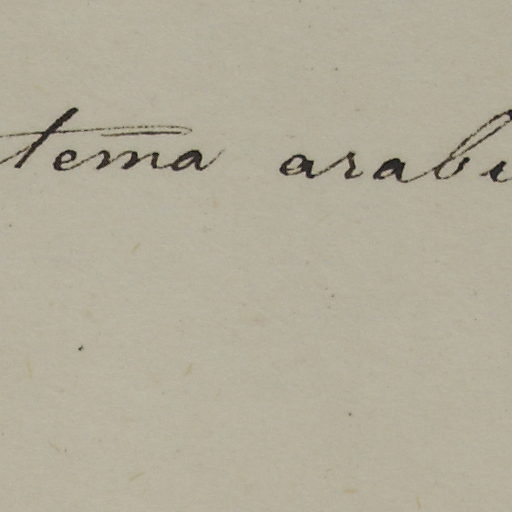 tema arabi